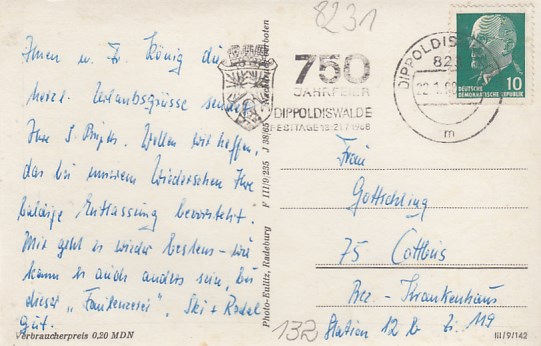 8231
Ihnen u. Fr. König die
herzl. Urlaubsgrüsse sendet
Ihre S. Wollen wir hoffen,
das bei unserem Wiedersehen Ihre
baldige Entlassung bevorsteht.
Mir geht es wieder bestens – wie
kann es auch anders sein, bei
dieser „Faulenzerei“. Ski + Rodel
gut.
Verbraucherpreis 0,20 MDN
Photo-Kulitz, Radeburg F III/9/235 J 38/65 Nachdruck verboten
750
JAHRFEIER
DIPPOLDISWALDE
FESTTAGE 13-21.7.1968
DIPPOLDISWALDE
m
DEUTSCHE
DEMOKRATISCHE REPUBLIK
10
Frau
Gottschling
75 Cottbus
Bez.-Krankenhaus
Station 12 b Zi. 119
132
III/9/142